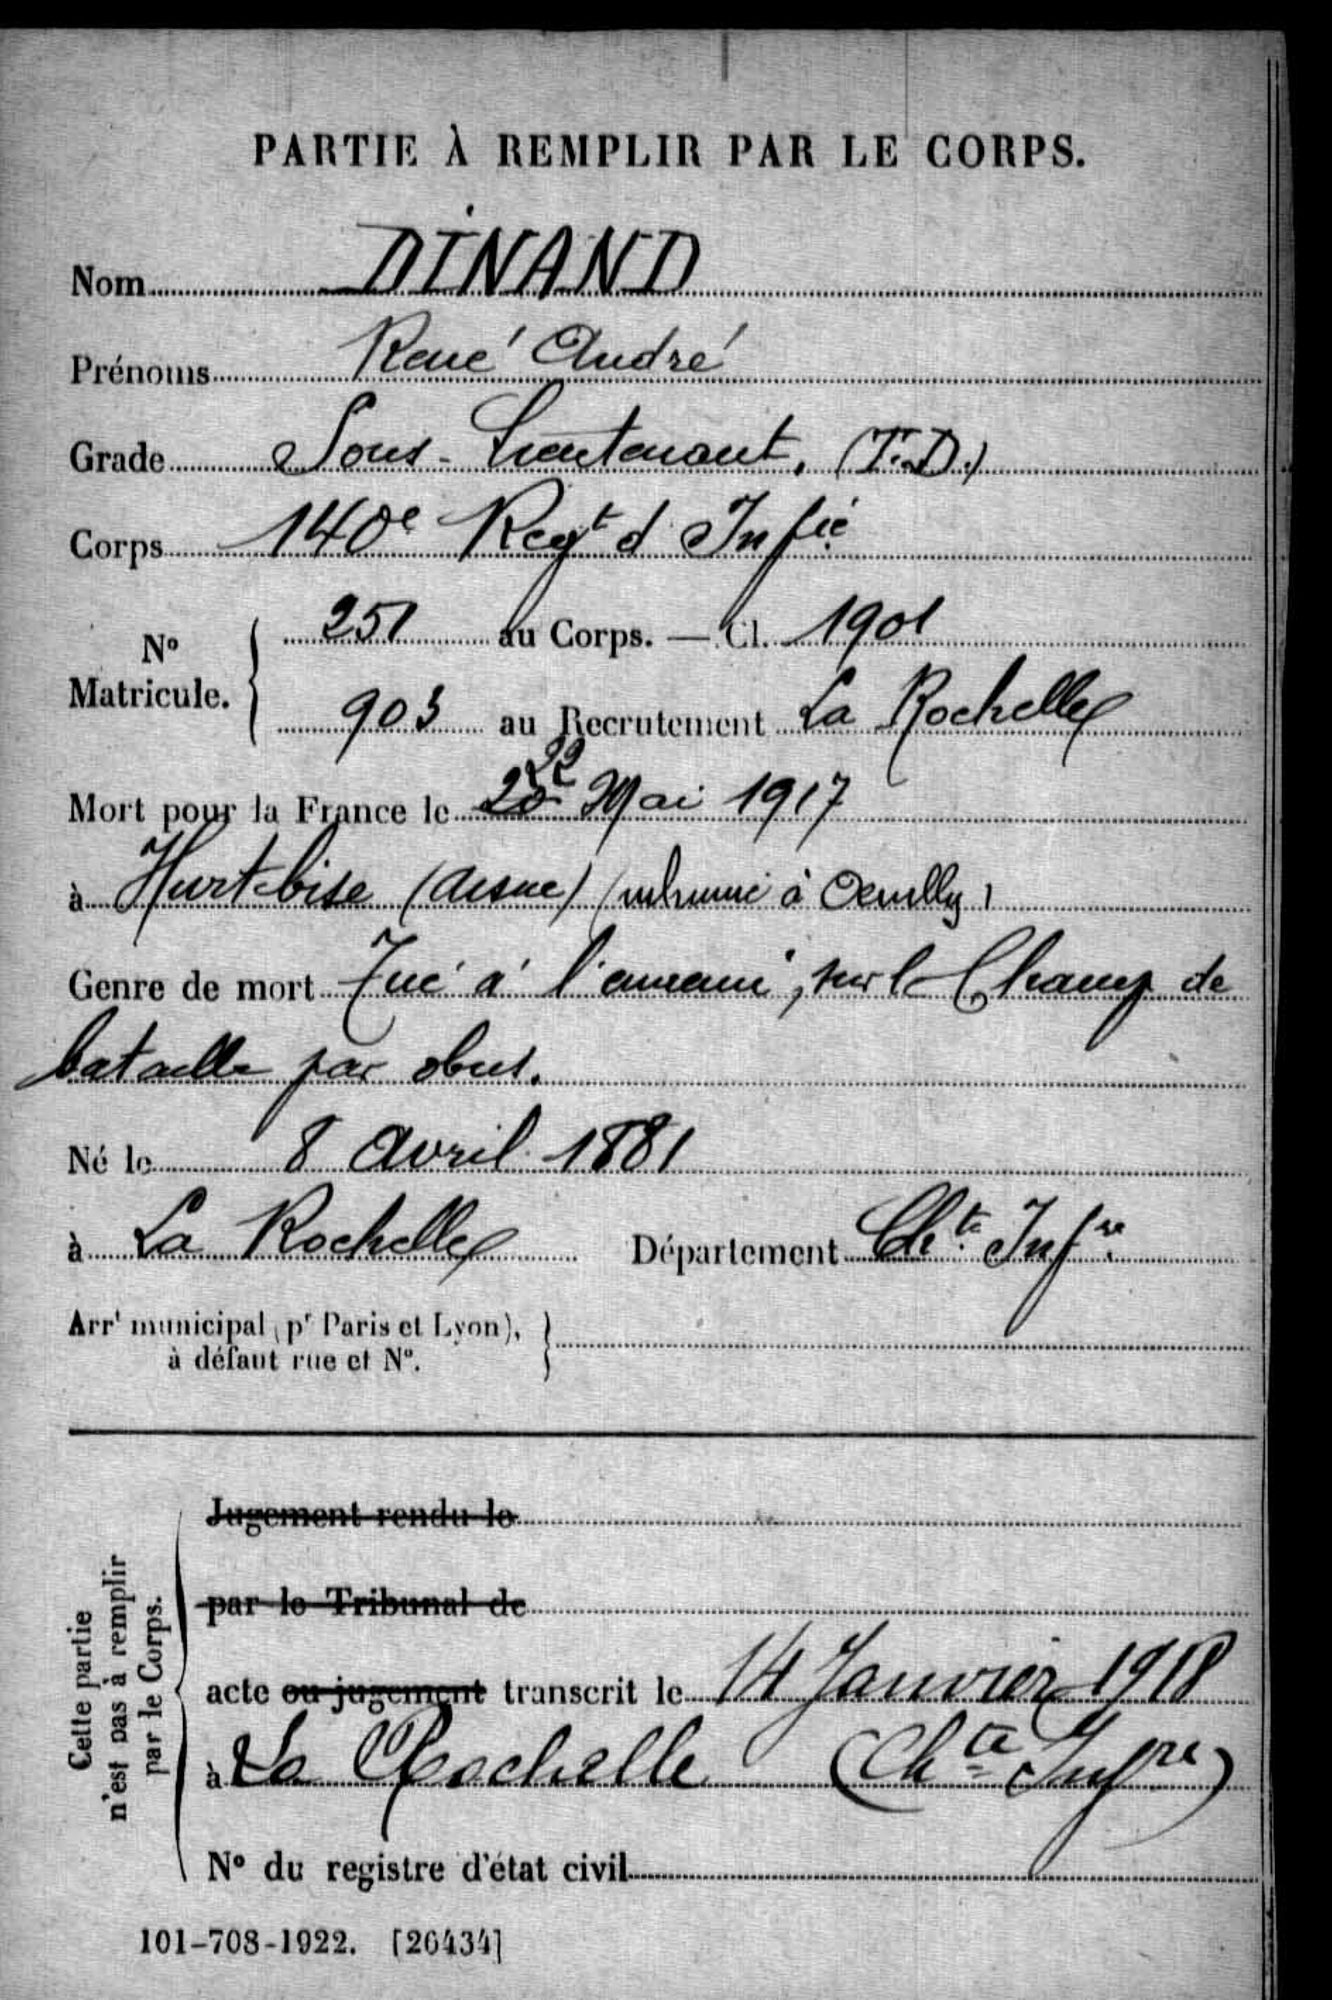 PARTIE À REMPLIR PAR LE CORPS.
Nom DINAND
Prénoms René André
Grade Sous-Lieutenant. (T.D.)
Corps 140e Regt d Infie
No Matricule. 251 au Corps. — Cl. 1901
903 au Recrutement La Rochelle
22
Mort pour la France le 20 Mai 1917
à Hurtebise (Aisne) (inhumé à Oeuilly)
Genre de mort Tué à l'ennemi, sur le Champ de
bataille par obus.
Né le 8 Avril 1881
à La Rochelle Département Chte Infre
Arrt municipal (pr Paris et Lyon),
à défaut rue et No.
Cette partie
n'est pas à remplir
par le Corps.
Jugement rendu le
par le Tribunal de
acte ou jugement transcrit le 14 Janvier 1918
à La Rochelle (Chte Infre)
No du registre d'état civil
101-708-1922. [26434]